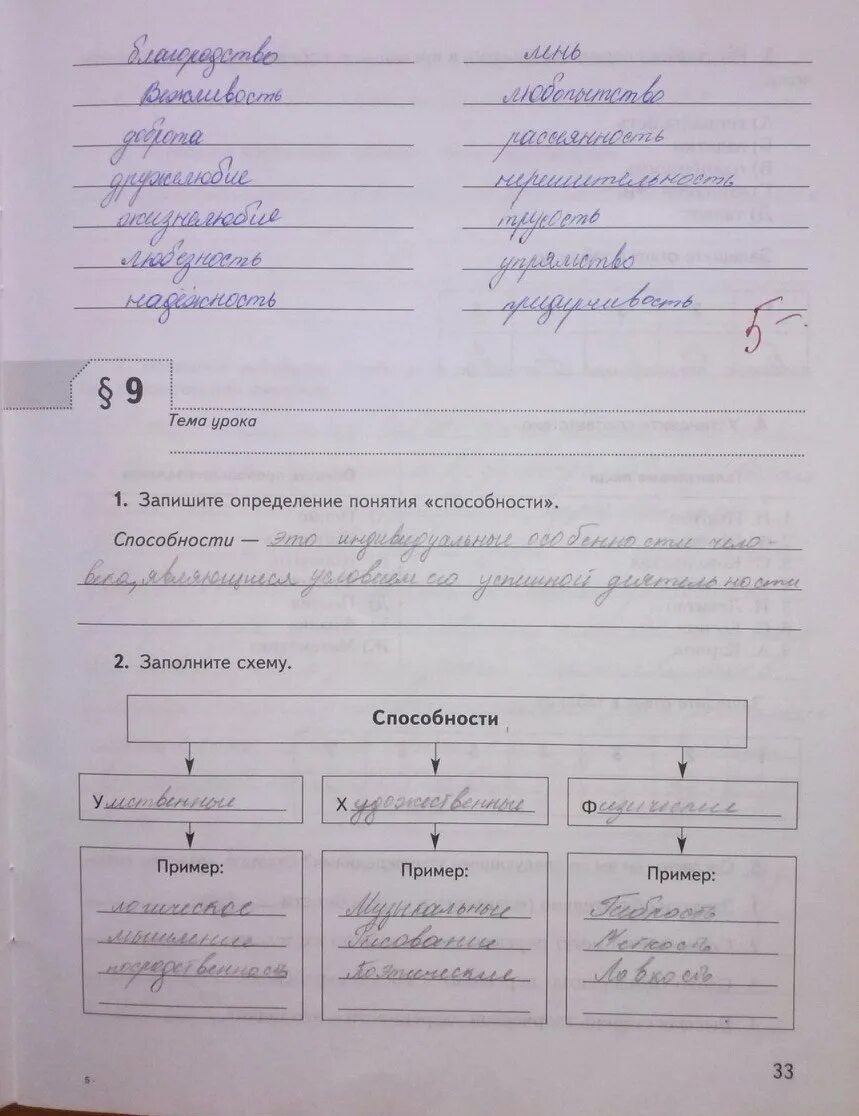 благородство
Вежливость
доброта
дружелюбие
жизнелюбие
любезность
надёжность
лень
любопытство
рассеянность
нерешительность
трусость
упрямство
придирчивость
5-
§ 9
Тема урока
1. Запишите определение понятия «способности».
Способности — это индивидуальные особенности чело-
века, являющиеся условием его успешной деятельности
2. Заполните схему.
Способности
Умственные
Художественные
Физические
Пример:
логическое
мышление
посредственность
Пример:
Музыкальные
Рисование
Поэтические
Пример:
Гибкость
Чёткость
Ловкость
33
5